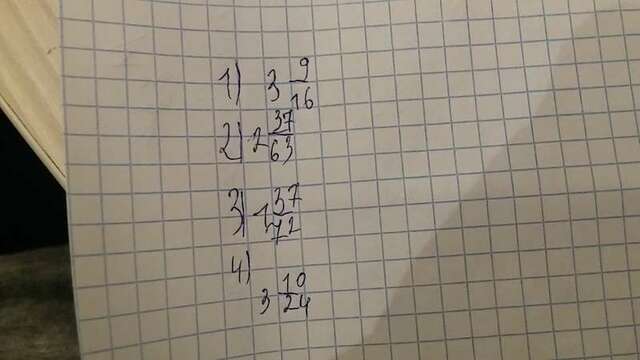 1) 3 9/16
2) 2 37/63
3) 1 37/72
4) 3 10/24